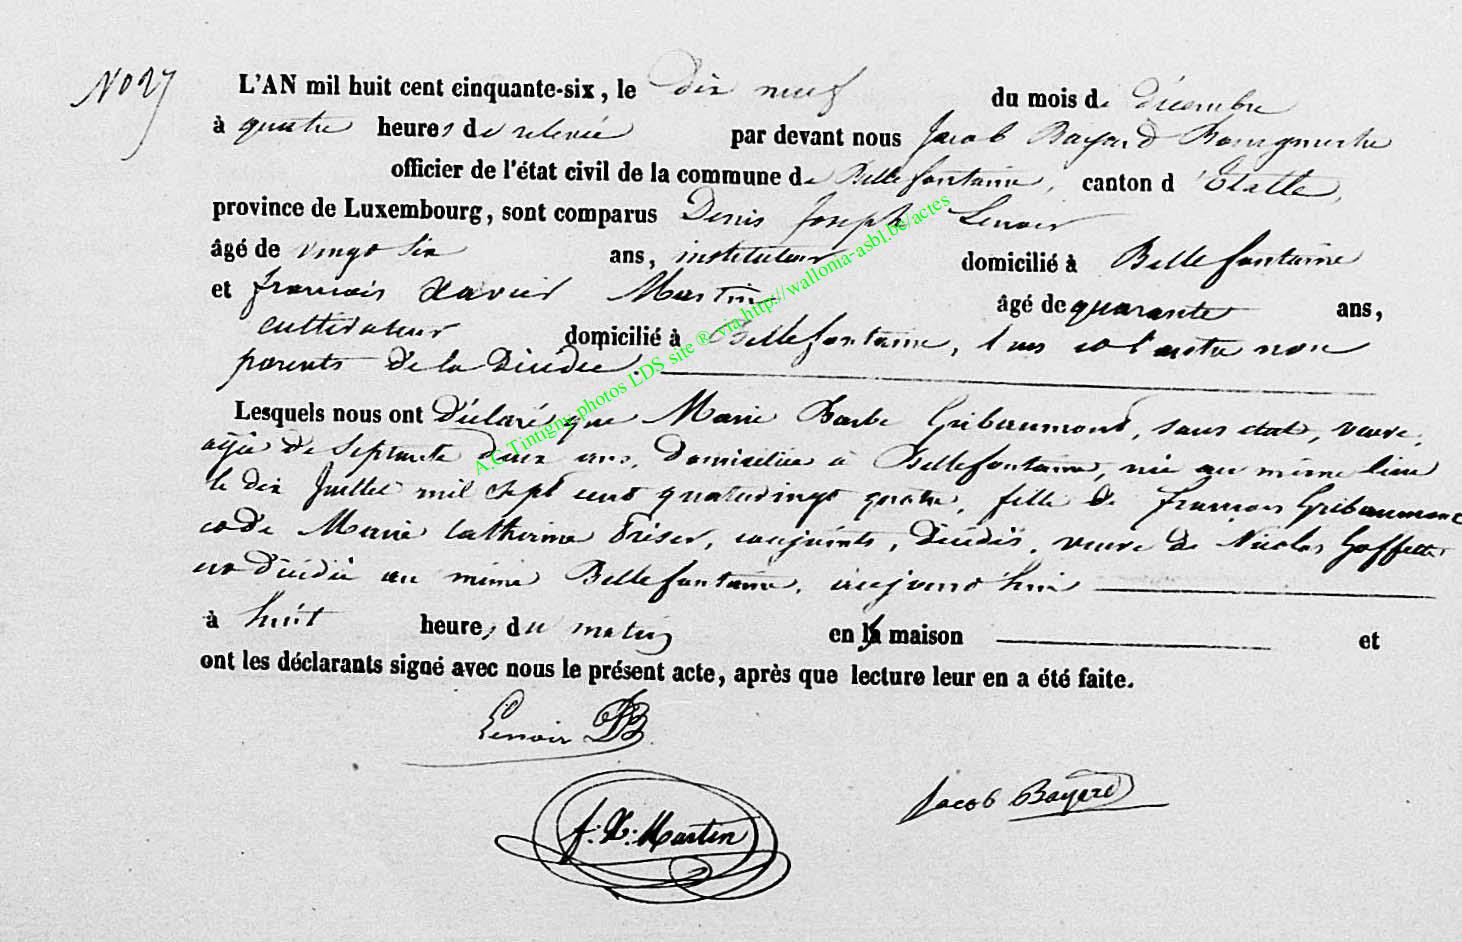 N° 27
L'AN mil huit cent cinquante-six, le dix neuf du mois de décembre
à quatre heures de relevée par devant nous Jacob Bayard Bourgmestre
officier de l'état civil de la commune de Bellefontaine, canton d'Etalle,
province de Luxembourg, sont comparus Denis Joseph Lenoir
âgé de vingt six ans, instituteur domicilié à Bellefontaine
et françois Xavier Martin âgé de quarante ans,
cultivateur domicilié à Bellefontaine, l'un et l'autre non
parents de la Décédée.
Lesquels nous ont Déclaré que Marie Barbe Gribaumont, sans état, veuve,
agée de Septante deux ans, Domiciliée à Bellefontaine, née au même lieu
le dix Juillet mil sept cent quatrevingt quatre, fille de françois Gribaumont
et de Marie Catherine Triser, conjoints, Décédés, veuve de Nicolas Goffette
est Décédée au même Bellefontaine, aujourd'hui
à huit heures du matin en sa maison et
ont les déclarants signé avec nous le présent acte, après que lecture leur en a été faite.
Lenoir
Jacob Bayard
f. X. Martin
A.C. Tintigny photos LDS site ® via http://wallonia-asbl.be/actes